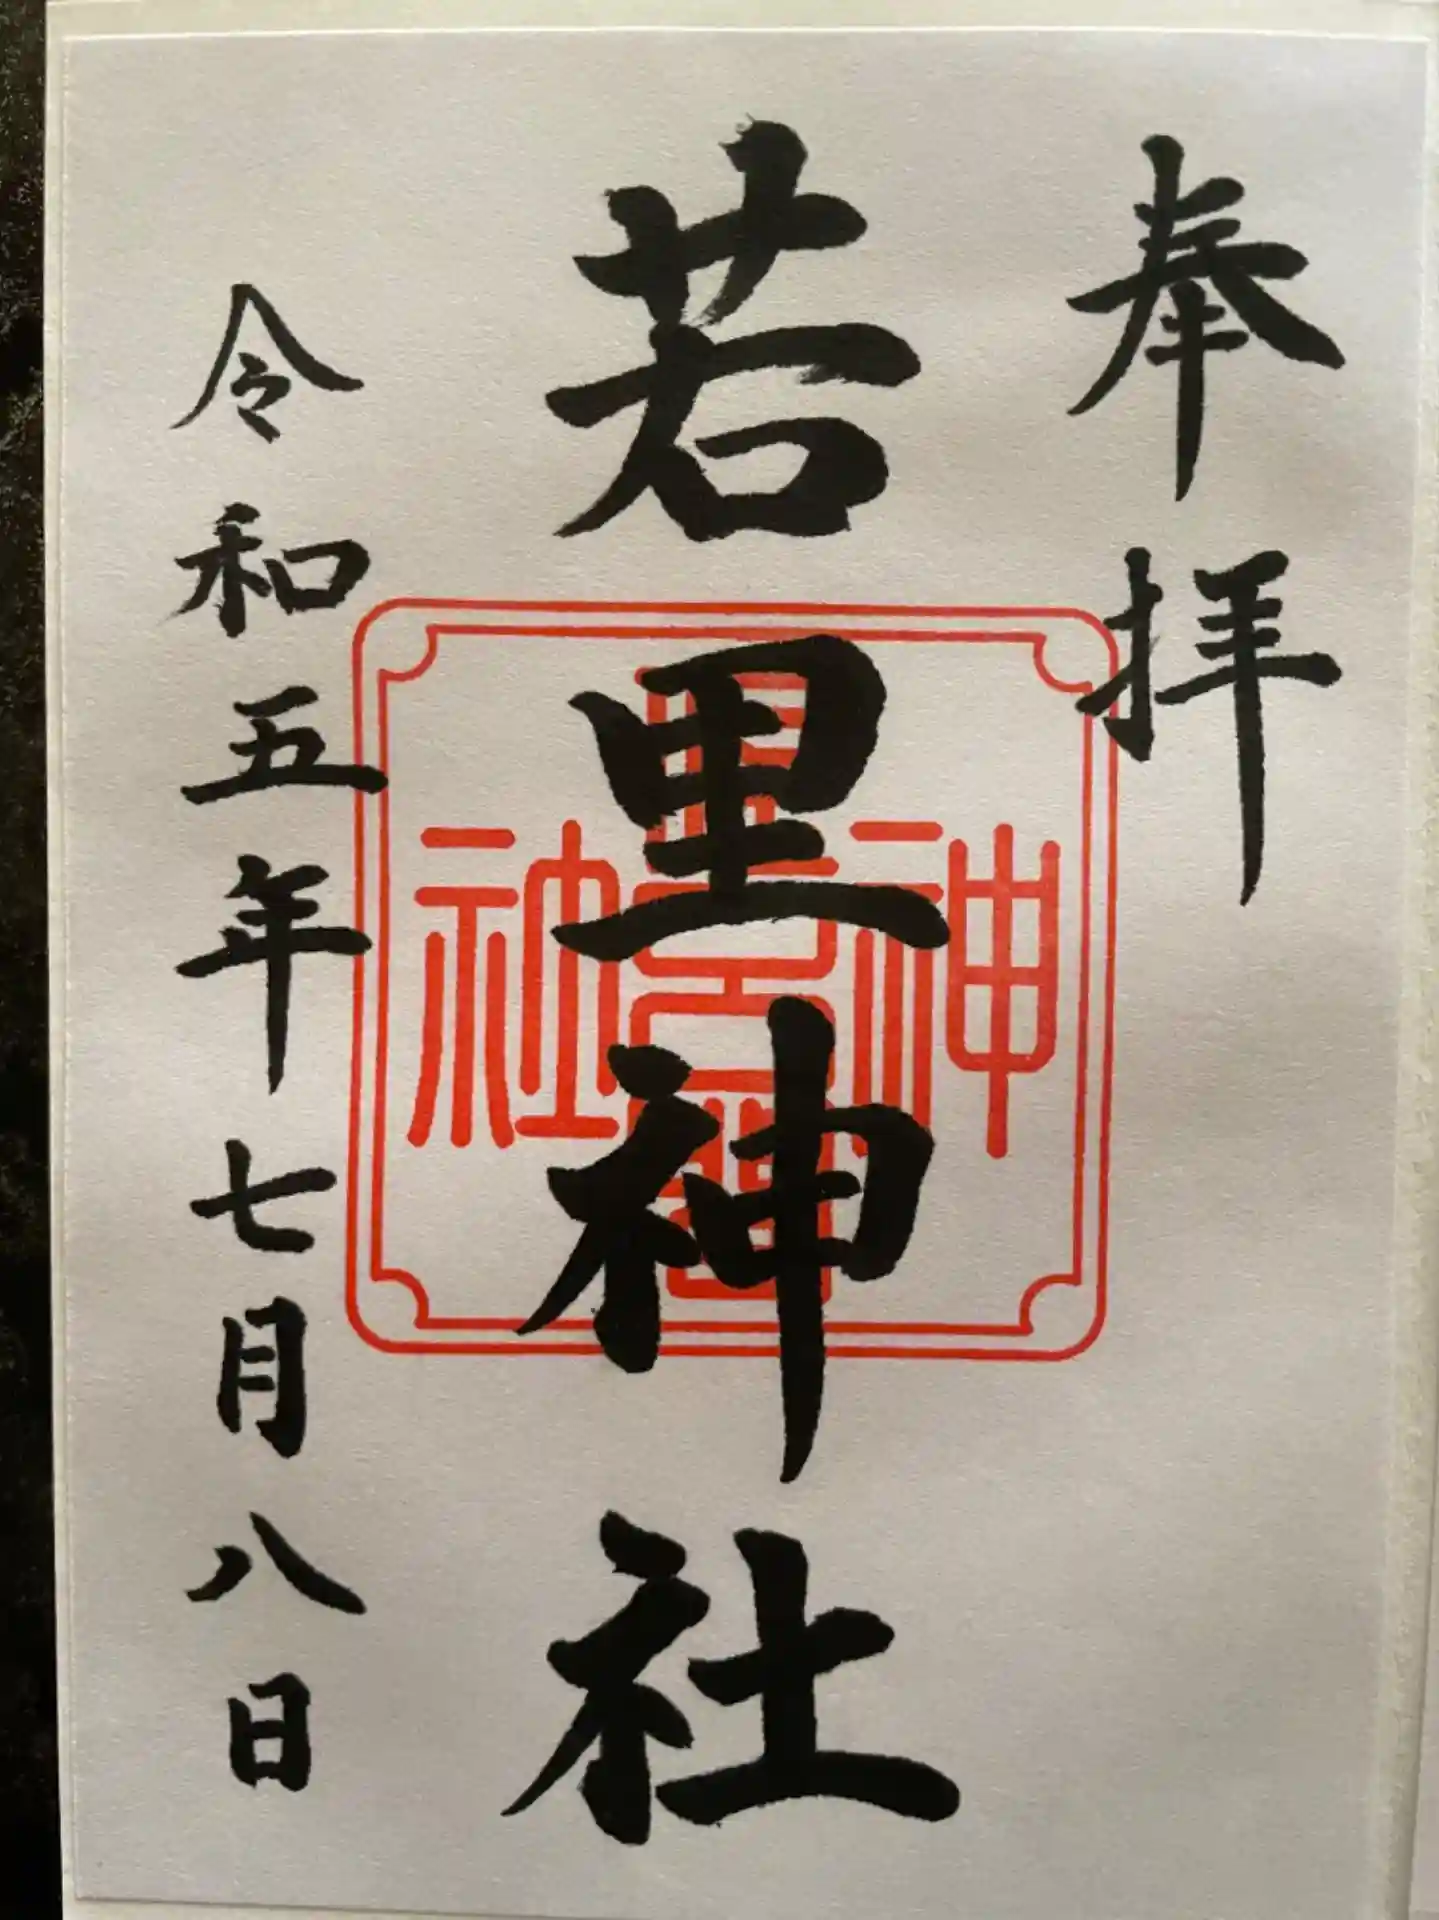 奉拝
若里神社
令和五年七月八日
神
社